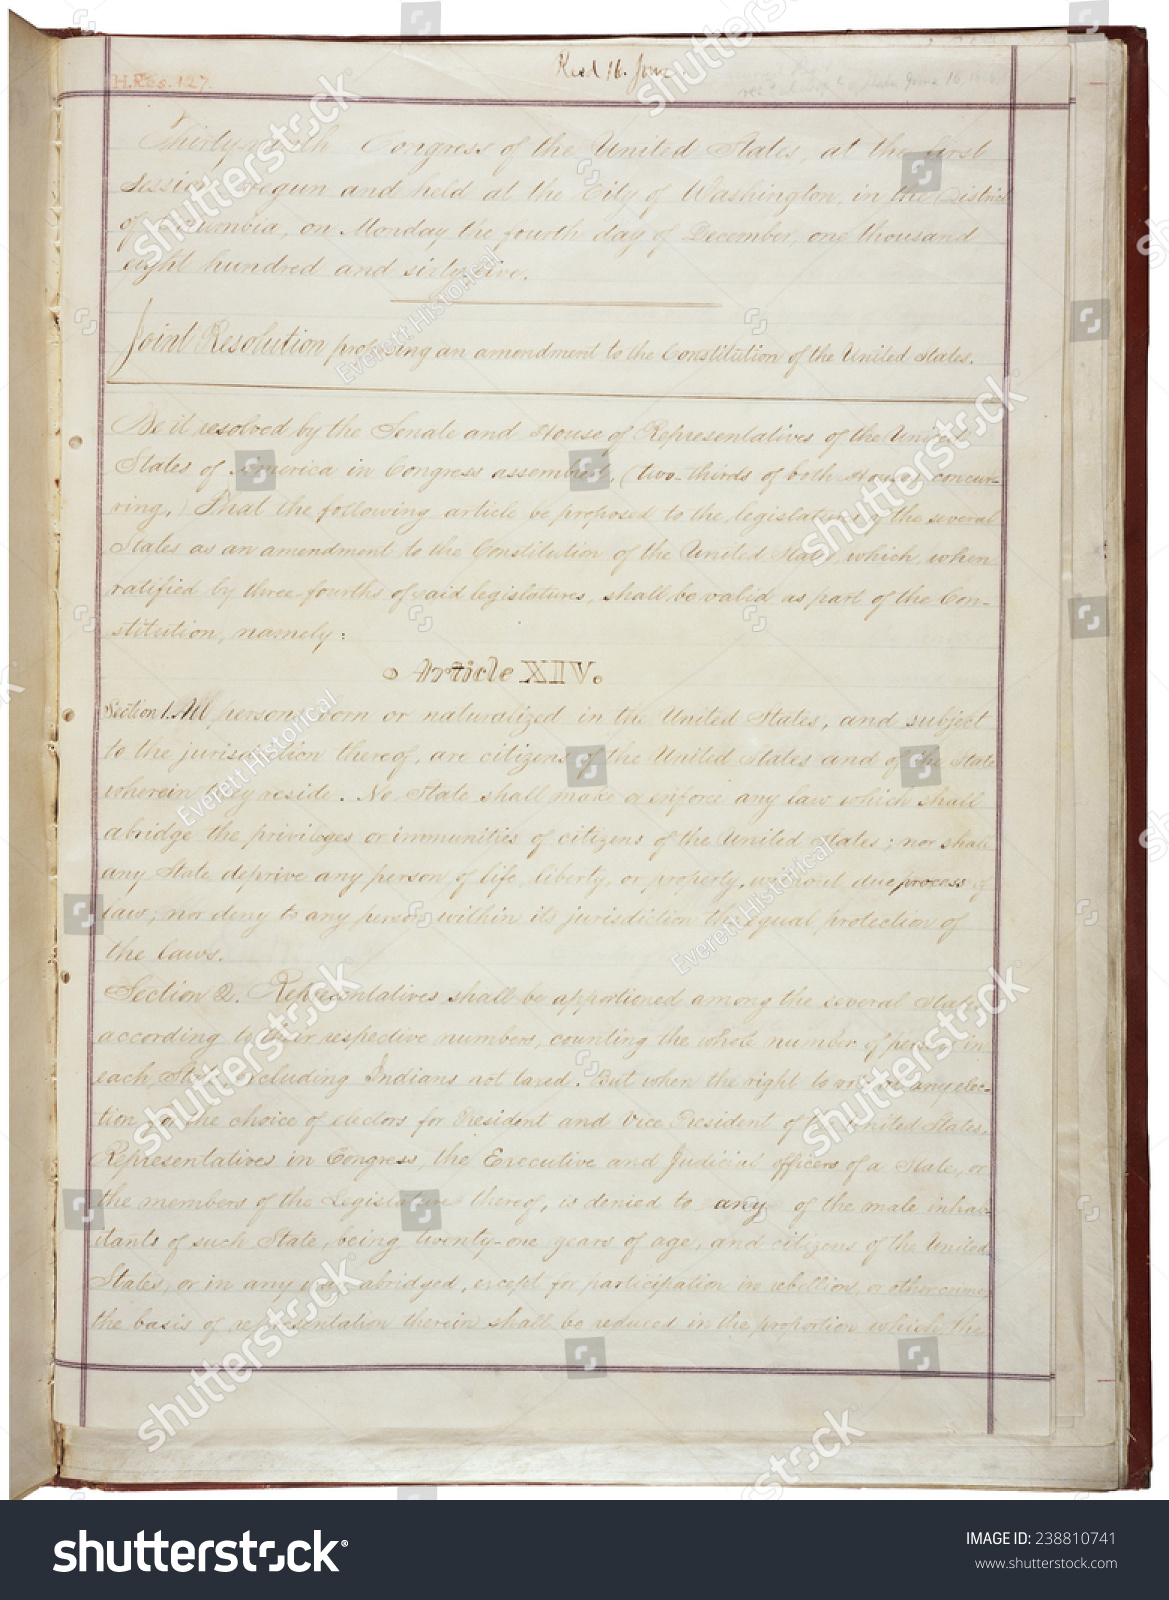 H.Res.127.
Recd 16. June
Thirty-ninth Congress of the United States, at the first
Session, begun and held at the City of Washington, in the District
of Columbia, on Monday the fourth day of December, one thousand
eight hundred and sixty-five.
Joint Resolution proposing an amendment to the Constitution of the United States.
Be it resolved by the Senate and House of Representatives of the United
States of America in Congress assembled, (two-thirds of both Houses concur-
ring,) That the following article be proposed to the legislatures of the several
States as an amendment to the Constitution of the United States, which, when
ratified by three-fourths of said legislatures, shall be valid as part of the Con-
stitution, namely:
Article XIV.
Section 1. All persons born or naturalized in the United States, and subject
to the jurisdiction thereof, are citizens of the United States and of the State
wherein they reside. No State shall make or enforce any law which shall
abridge the privileges or immunities of citizens of the United States; nor shall
any State deprive any person of life, liberty, or property, without due process of
law; nor deny to any person within its jurisdiction the equal protection of
the laws.
Section 2. Representatives shall be apportioned among the several States
according to their respective numbers, counting the whole number of persons in
each State, excluding Indians not taxed. But when the right to vote at any elec-
tion for the choice of electors for President and Vice President of the United States,
Representatives in Congress, the Executive and Judicial officers of a State, or
the members of the Legislature thereof, is denied to any of the male inhab-
itants of such State, being twenty-one years of age, and citizens of the United
States, or in any way abridged, except for participation in rebellion, or other crime,
the basis of representation therein shall be reduced in the proportion which the
shutterstock
Everett Historical
shutterstock
IMAGE ID: 238810741
www.shutterstock.com